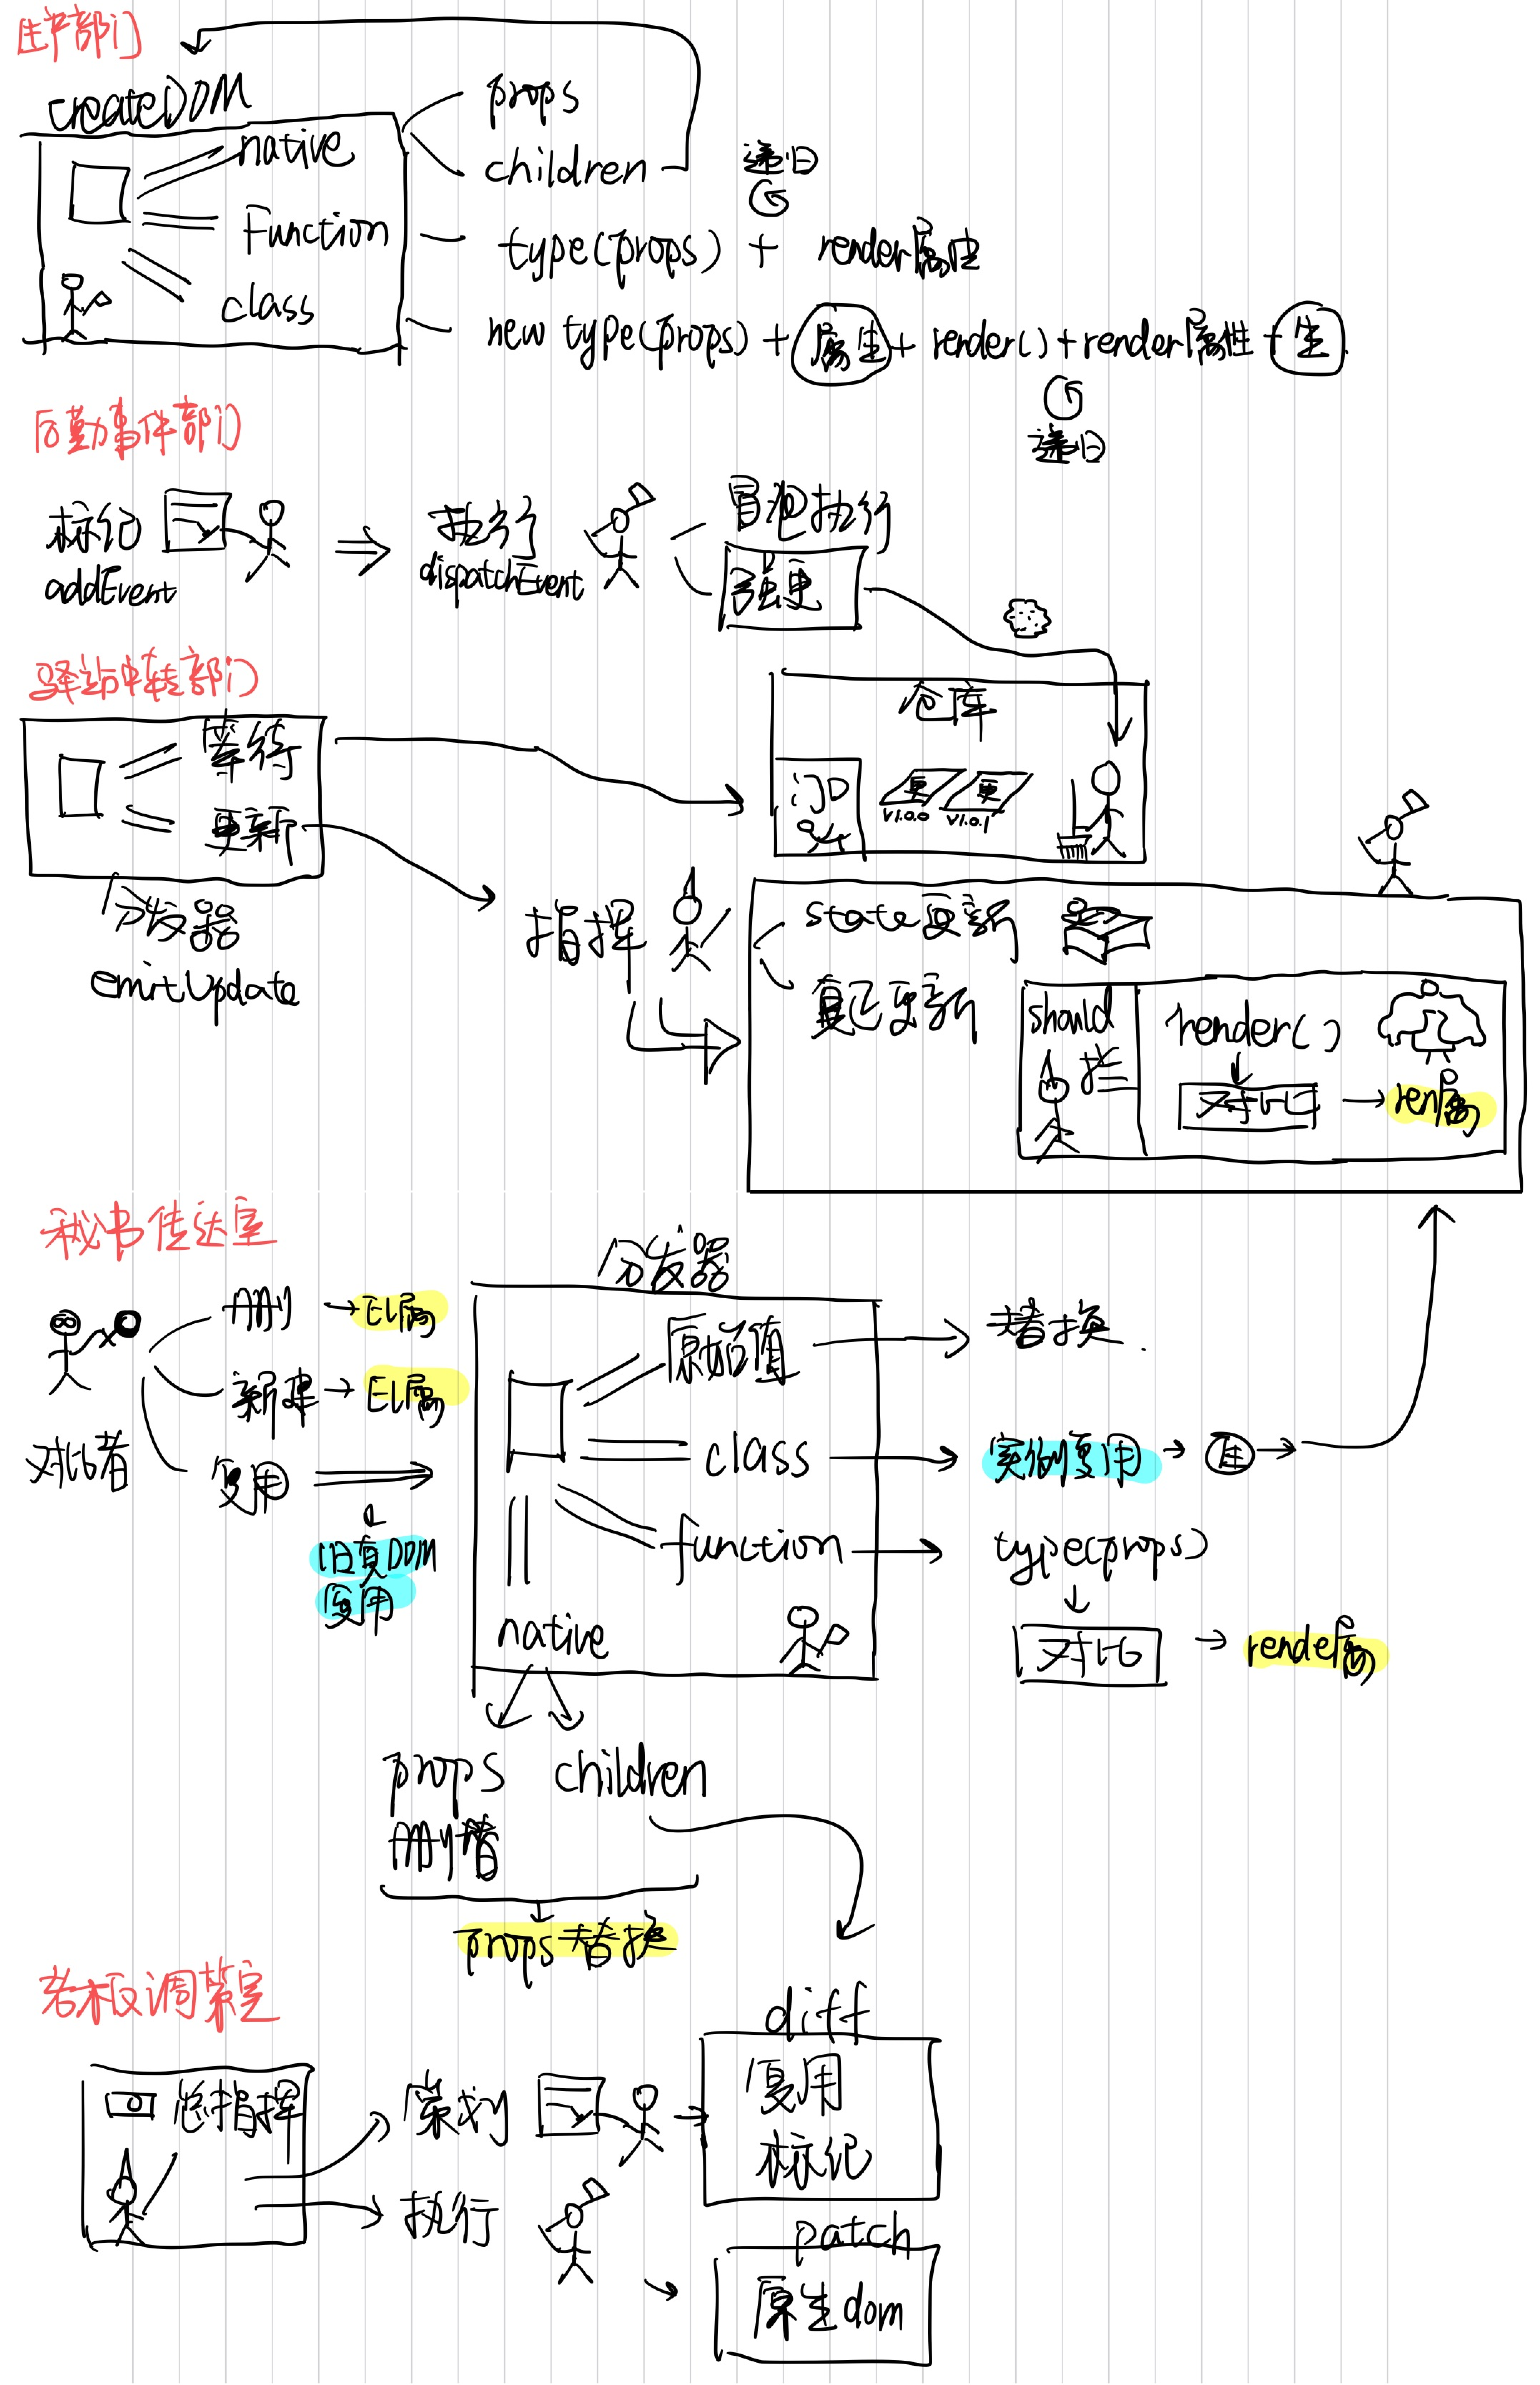 生产部门
createDOM
native
props
children
递归
function
type(props) + render属性
class
new type(props) + 属生 + render() + render属性 + 生
递归
后勤事件部门
标记
addEvent
执行
dispatchEvent
冒泡执行
强更
驿站中转部门
等待
更新
分发器
emitUpdate
仓库
更
V1.0.0
更
V1.0.1
指挥
state更新
真正更新
should
拦
render()
对比
ren属
秘书传达室
对比者
删
EL属
新建
EL属
复用
旧真DOM
复用
分发器
原始值
替换
class
实例复用
库
function
type(props)
对比
render属
native
props children
删替
props替换
老板调策室
总指挥
策划
执行
diff
复用
标记
patch
原生dom